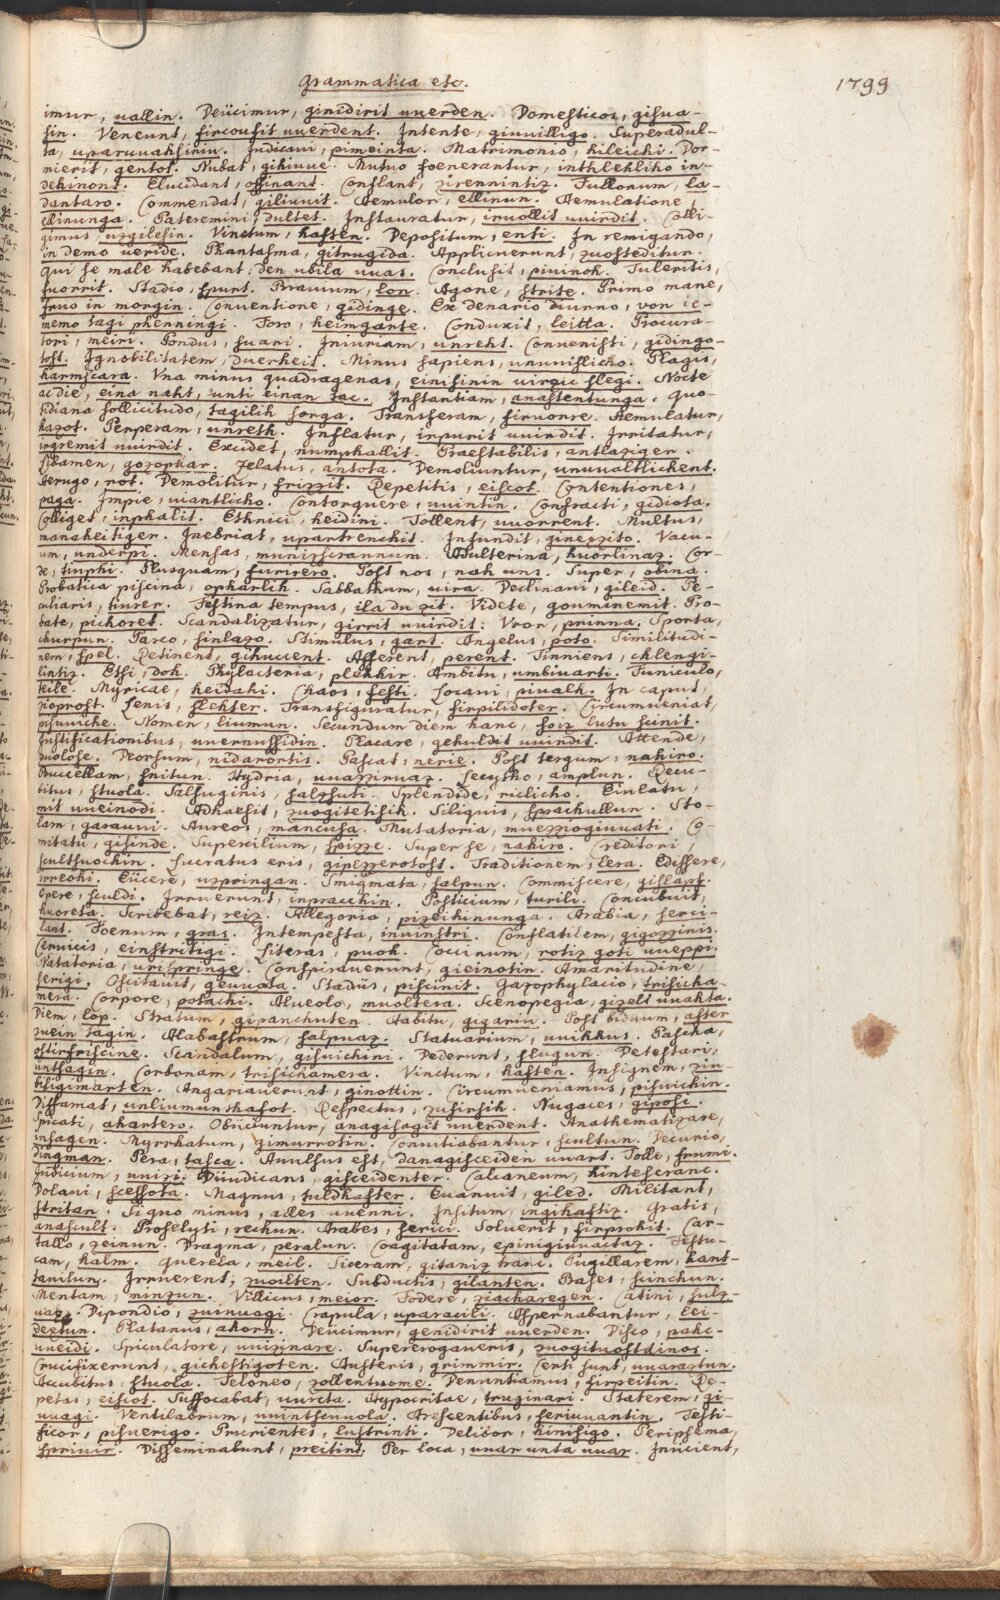 Grammatica etc.
1799
imur, uallin. Deiicimur, ginidirit uuerden. Domesticos, gisua-
sin. Veneunt, fircoufit uuerdent. Intente, ginuilligo. Superadul-
ta, uparuuahsiniu. Iudicaui, pimeinta. Matrimonio, hileichi. Dor-
mierit, gentot. Nubat, gihiuue. Mutuo foenerantur, inthlehliho in-
dehinont. Elucidant, offinant. Conflant, zirennintiz. Fullonum, la-
dantaro. Commendat, giliuuit. Aemulor, ellinun. Aemulatione,
ellinunga. Pateremini, dultet. Instauratur, inuollit uuirdit. Colli-
gimus, uzgilesin. Vinctum, haften. Depositum, enti. In remigando,
in demo ueride. Phantasma, gitrugida. Applicuerunt, zuosteditun.
Qui se male habebant, den ubila uuas. Conclusit, piuinoh. Tuleritis,
fuorrit. Stadio, spurt. Brauium, lon. Agone, strite. Primo mane,
fruo in morgin. Conuentione, gidinge. Ex denario diurno, von ie-
nemo tagi phenningi. Foro, heimgarte. Conduxit, leitta. Procura-
tori, meiri. Pondus, suari. Iniuriam, unreht. Conuenisti, gidingo-
tost. Ignobilitatem, duerheit. Minus sapiens, unuuislicho. Plagis,
harmscara. Vna minus quadragenas, einisinin uirzic slegi. Nocte
ac die, eina naht, unti einan tac. Instantiam, anastentunga. Quo-
tidiana sollicitudo, tagilih sorga. Transferam, firuorre. Aemulatur,
hazot. Perperam, unreth. Inflatur, inpurit uuirdit. Irritatur,
irgremit uuirdit. Excidet, numphallit. Praestabilis, antlaziger.
Libamen, gozophar. Zelatus, antota. Demoliuntur, unuualtichent.
Aerugo, rot. Demolitur, frizzit. Repetitis, eiscot. Contentiones,
paga. Impie, uiantlicho. Contorquere, uuintin. Confracti, gidiota.
Colliget, inphalit. Ethnici, heidini. Tollent, uuorrent. Multus,
manakeitiger. Inebriat, upartrenchit. Infundit, ginezzito. Vacu-
um, underpi. Mensas, munizscrannum. Adulterina, huorlinaz. Cor-
de, tiuphi. Plusquam, furirero. Post nos, nah uns. Super, obina.
Probatica piscina, opharlih. Sabbathum, uira. Declinaui, gileid. Pe-
culiaris, tiurer. Festina tempus, ila du zit. Videte, gouminemit. Pro-
bate, pichoret. Scandalizatur, girrit uuirdit. Vror, prinna. Sporta,
churpun. Parco, hinlazo. Stimulus, gart. Angelus, poto. Similitudi-
nem, spel. Retinent, gihuccent. Afferent, perent. Tinniens, chlengi-
lintiz. Etsi, doh. Phylacteria, plehhir. Ambitu, umbiuarti. Funiculo,
teile. Myricae, heidahi. Chaos, festi. Locaui, piualh. In caput,
zioprost. Lenis, slehter. Transfiguratur, firpilidoter. Circumueniat,
pisuuiche. Nomen, liumun. Secundum diem hanc, soiz lutu scinit.
Iustificationibus, uuernussidin. Placare, gehuldit uuirdit. Attende,
zuolose. Deorsum, nidarortis. Pascat, nerie. Post tergum, nahiro.
Buccellam, snitun. Hydria, uuazziruaz. Lecytho, amplun. Recu-
bitus, stuola. Salsuginis, salzsuti. Splendide, riclicho. Eiulatu,
mit uueinodi. Adhaesit, zuogitetisih. Siliquis, sprachullun. Sto-
lam, garauui. Aureos, mancusa. Mutatoria, muezzogiuuati. Co-
mitatu, gisinde. Supercilium, spizze. Super se, nahiro. Creditori,
scultsuochin. Lucratus eris, gipezzerotost. Traditionem, lera. Edissere,
irrechi. Eiicere, uzpringan. Smigmata, salpun. Commiscere, gislaph.
Opere, sculdi. Irruerunt, inpracchin. Posticium, turili. Concubuit,
huoreta. Scribebat, reiz. Allegoria, pizeihinunga. Arabia, serci-
lant. Foenum, gras. Intempesta, inuinstri. Conflatilem, gigozzinis.
Ceruicis, einstritigi. Literas, puoh. Coccinum, rotiz goti uueppi.
Natatoria, urispringe. Conspirauerunt, gieinotin. Amaritudine,
serigi. Oscitauit, geuuota. Stadiis, piscinit. Gazophylacio, trisicha-
mera. Corpore, potachi. Alueolo, muoltera. Scenopegia, gizelt uuahta.
Diem, lop. Stratum, gipanchuten. Habitu, gigariu. Post biduum, after
zuein tagin. Alabastrum, salpuaz. Statuarium, uuihhus. Pascha,
ostirfriscine. Scandalum, gisuichini. Dederunt, slugun. Detestari,
intsagin. Corbonam, trisichamera. Vinctum, haften. Insignem, ziu-
bisigimarten. Angariauerunt, ginottin. Circumueniamus, pisuichin.
Diffamat, unliumunthasot. Respectus, zusirsih. Nugaces, giposi.
Spicati, ahartero. Obiiciuntur, anagisagit uuerdent. Anathematizare,
insagen. Myrrhatum, gimurrotin. Conuitiabantur, scultun. Decurio,
dingman. Pera, tasca. Auulsus est, danagisceiden uuart. Tolle, frumi.
Iudicium, uuizi. Diiudicans, gisceidenter. Calcaneum, hintescranc.
Dolaui, scessota. Magnus, tuldhaster. Euanuit, giled. Militant,
stritan. Si quo minus, alles uuenni. Insitum, ingihaftiz. Gratis,
anascult. Proselyti, rechun. Arabes, serici. Soluerit, finprohit. Car-
tallo, zeinun. Dragma, peralun. Coagitatam, epinigiuuaitaz. Festu-
cam, halm. Querela, meil. Siceram, gitaniz tranc. Pugillarem, hant-
tauilun. Irruerent, zuoilten. Subductis, gilanten. Bases, scinchun.
Mentam, minzun. Villicus, meior. Fodere, ziacharegen. Catini, sulz-
uaz. Dipondio, zuiuuagi. Crapula, uparacili. Aspernabantur, lei-
dectun. Platanus, ahorn. Deiicimur, genidirit uuerden. Disco, pahc-
uueidi. Spiculatore, uuizinare. Supererogaueris, zuogituostdinos.
Crucifixerunt, gichestigoten. Austeris, grimmir. Certi sunt, uuaraztun.
Accubitus, stuola. Teloneo, zollentuome. Denuntiamus, firpeitin. Re-
petas, eiscot. Suffocabat, uurcta. Hypocritae, truginari. Staterem, gi-
uuagi. Ventilabrum, uuintscuuola. Arescentibus, seriuuantin. Testi-
ficor, pisuerigo. Prurientes, lustrinti. Delibor, hinisigo. Peripsema,
spriuir. Disseminabunt, preitint. Per loca, uuar unta uuar. Iniicient,